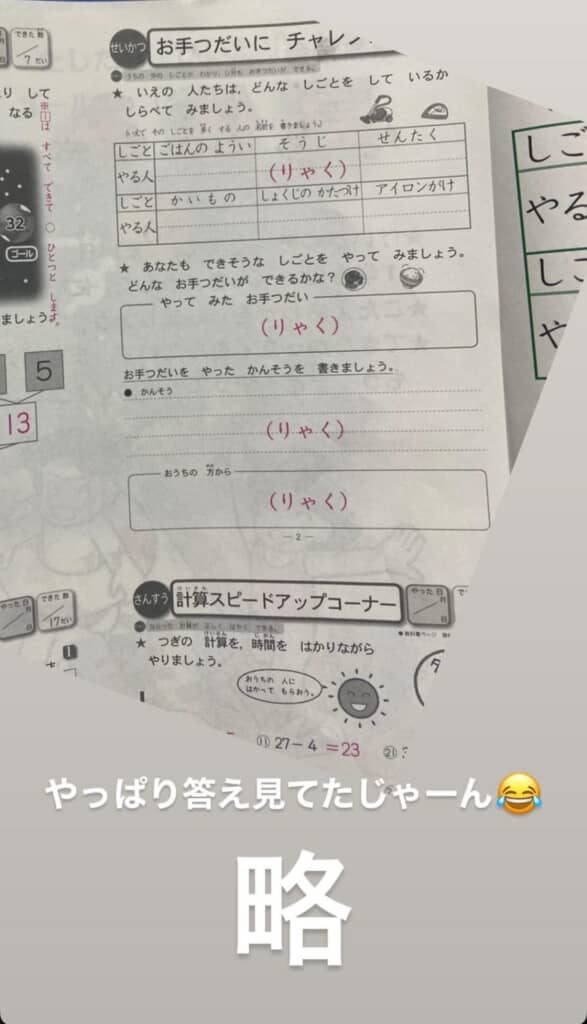 できた数
7だい
せいかつ
お手つだいに チャレン
★ いえの 人たちは、どんな しごとを して いるか
しらべて みましょう。
しごと ごはんの ようい そうじ せんたく
やる人 (りゃく)
しごと かいもの しょくじの かたづけ アイロンがけ
やる人
★ あなたも できそうな しごとを やって みましょう。
どんな お手つだいが できるかな?
やって みた お手つだい
(りゃく)
お手つだいを やった かんそうを 書きましょう。
● かんそう
(りゃく)
おうちの 方から
(りゃく)
— 2 —
して
なる
※□は すべて できて ○ ひとつと します。
32
ゴール
ましょう。
5
13
しご
やる
しご
や
やった日
月
日
できた数
17だい
1
さんすう
計算スピードアップコーナー
けいさん
やった日
月
日
★ つぎの 計算を、時間を はかりながら
やりましょう。
おうちの 人に
はかって もらおう。
⑪ 27－4 ＝23
㉑
やっぱり答え見てたじゃーん😂
略